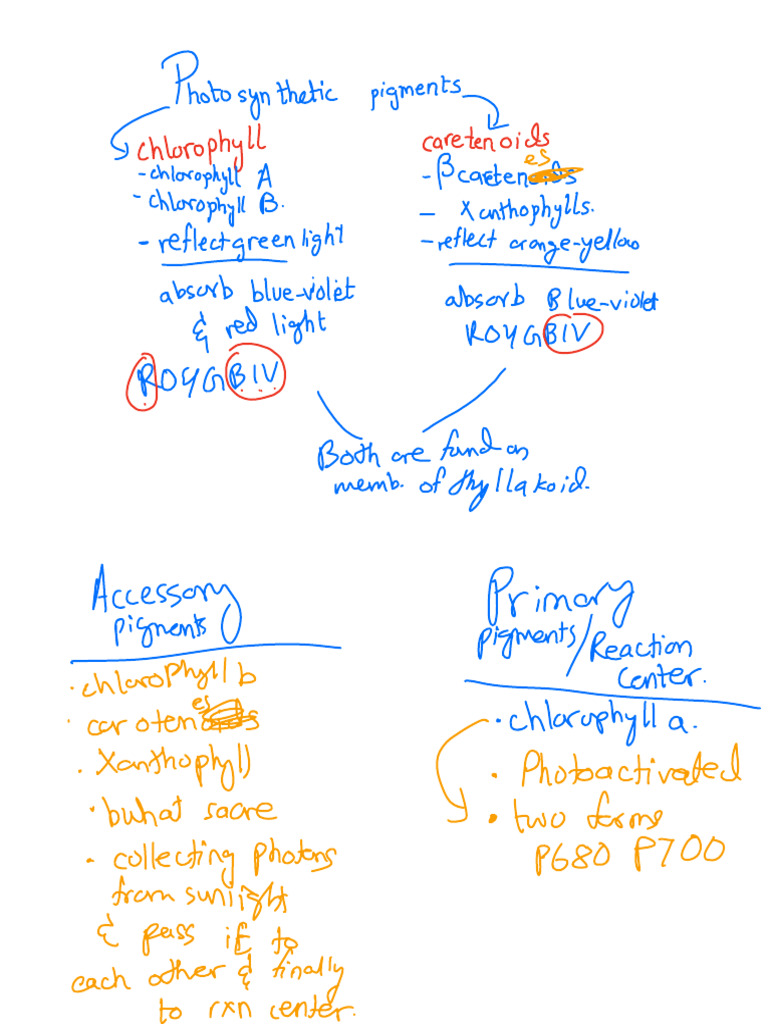 Photosynthetic pigments
chlorophyll
- chlorophyll A
- chlorophyll B.
- reflect green light
absorb blue-violet
& red light
ROYGBIV
caretenoids
es
- β caeten
- Xanthophylls.
- reflect orange-yellow
absorb Blue-violet
ROYGBIV
Both are fund on
memb. of thyllakoid.
Accessory
pigments
· chlorophyll b
es
· caroten
· Xanthophyll
· buhat sacre
· collecting photons
from sunlight
& pass it to
each other & finally
to rxn center.
Primary
pigments/Reaction
center.
· chlorophyll a.
· Photoactivated
· two forms
P680 P700